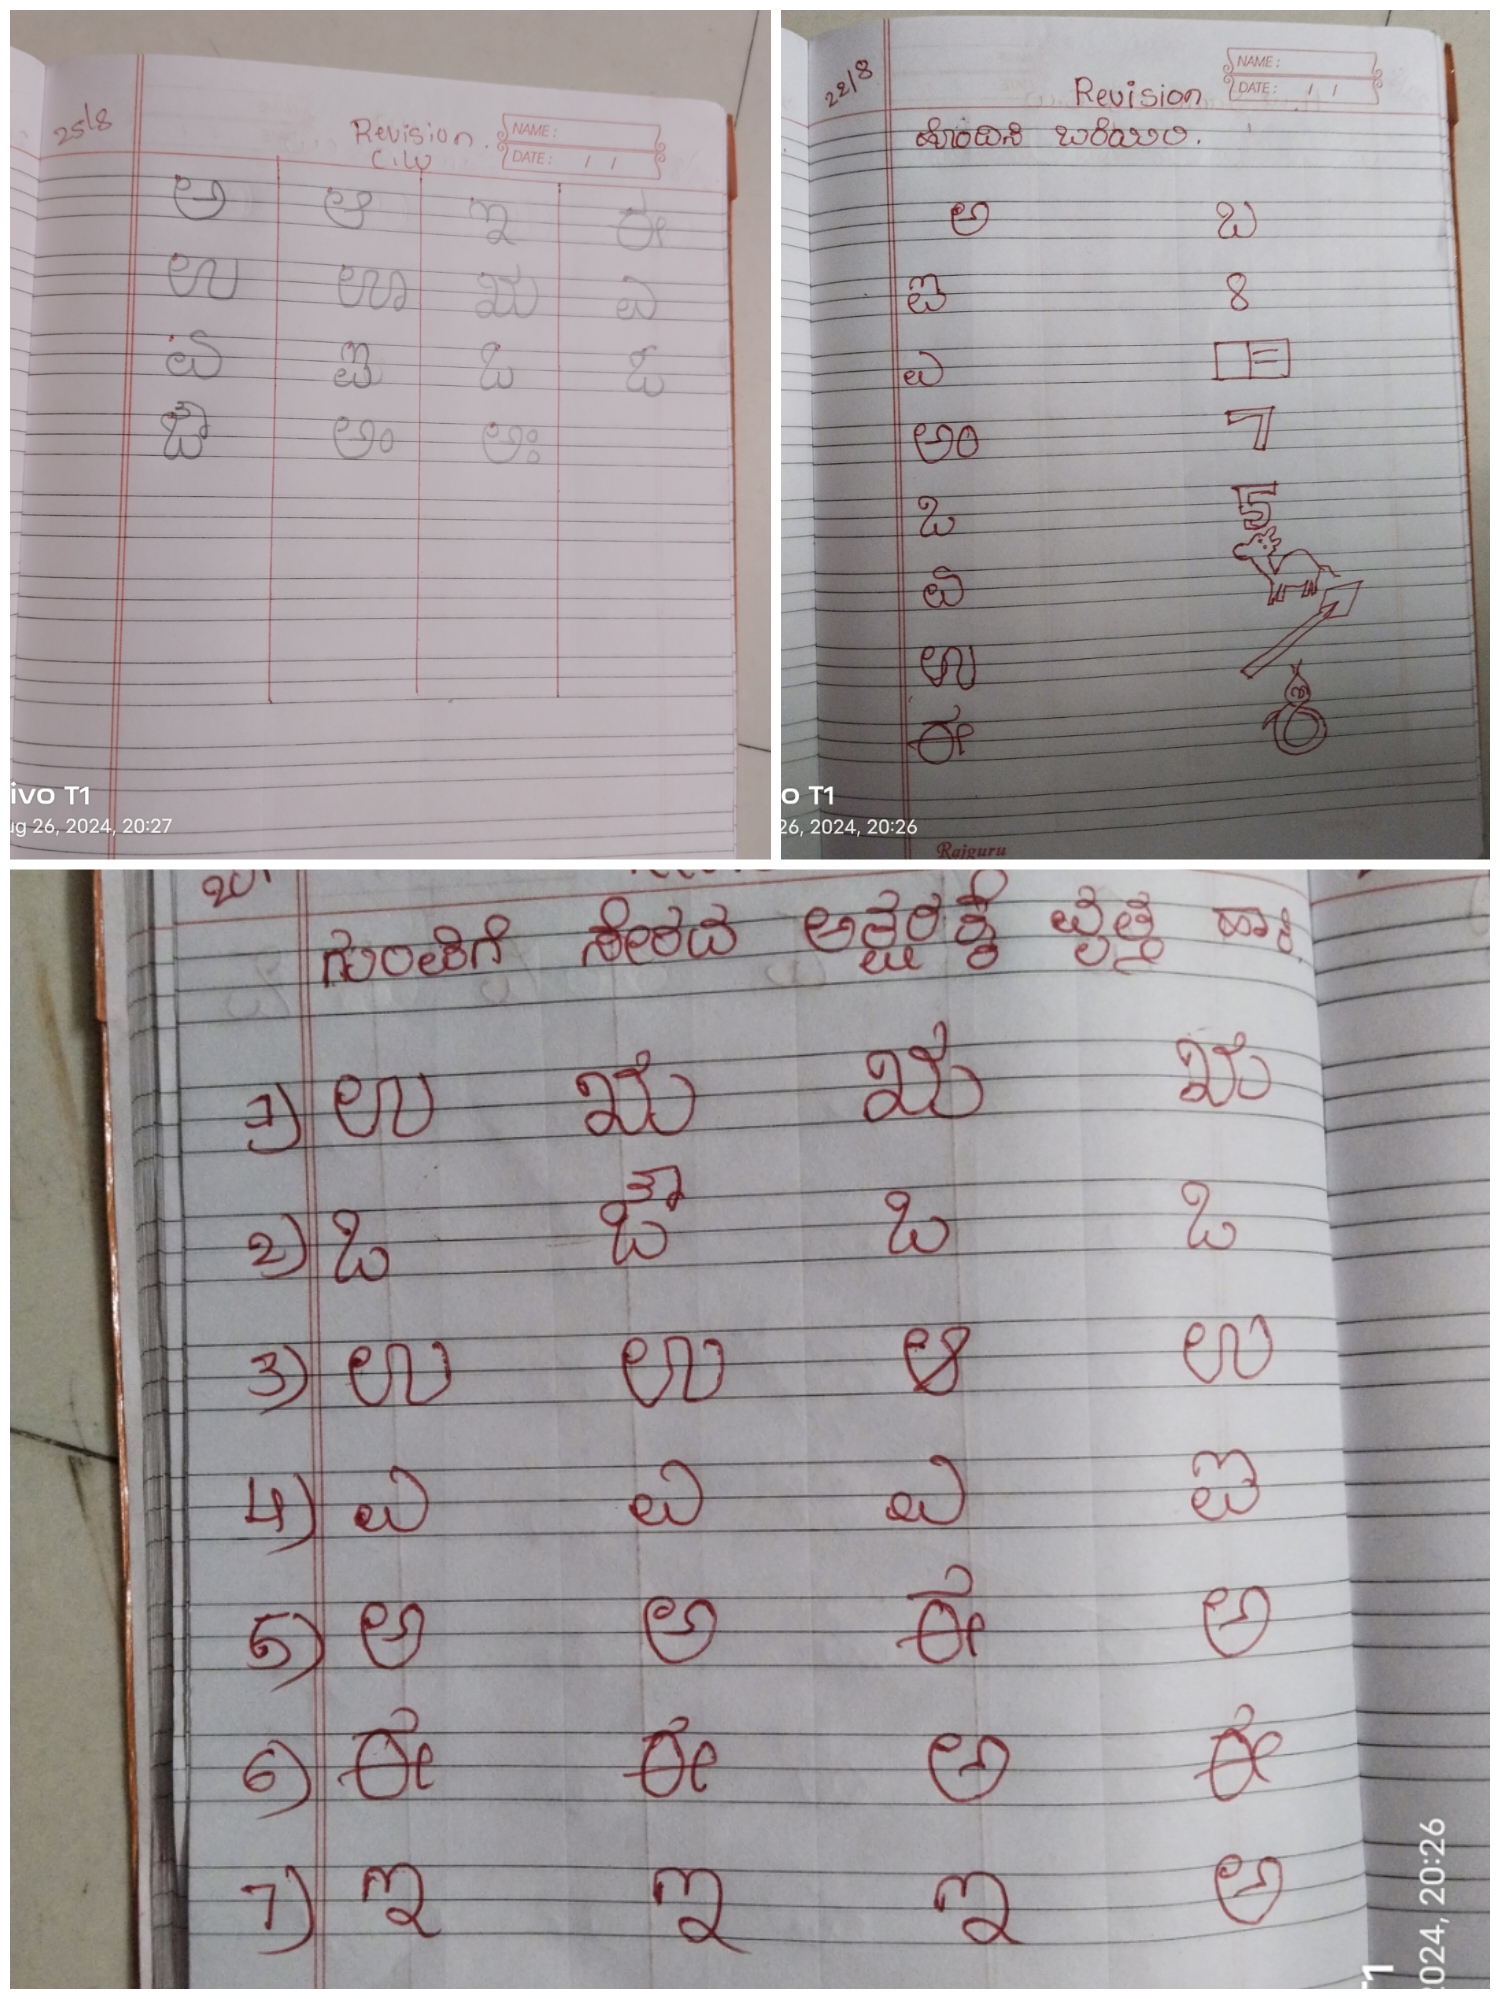 25/8
Revision
C.W
NAME:
DATE: / /
ಅ ಆ ಇ ಈ
ಉ ಊ ಋ ಎ
ಏ ಐ ಒ ಓ
ಔ ಅಂ ಅಃ
ivo T1
ug 26, 2024, 20:27
22/8
Revision
NAME:
DATE: / /
ಹೊಂದಿಸಿ ಬರೆಯಿರಿ.
ಅ ಒ
ಐ 8
ಎ =
ಅಂ 7
ಒ 5
ಏ
ಉ
ಈ
o T1
26, 2024, 20:26
Rajguru
ಗುಂಪಿಗೆ ಸೇರದ ಅಕ್ಷರಕ್ಕೆ ವೃತ್ತ ಹಾಕಿ.
1) ಉ ಋ ಋ ಋ
2) ಒ ಔ ಒ ಒ
3) ಉ ಉ ಆ ಉ
4) ಎ ಎ ಎ ಐ
5) ಅ ಅ ಈ ಅ
6) ಈ ಈ ಅ ಈ
7) ಇ ಇ ಇ ಅ
T1
2024, 20:26